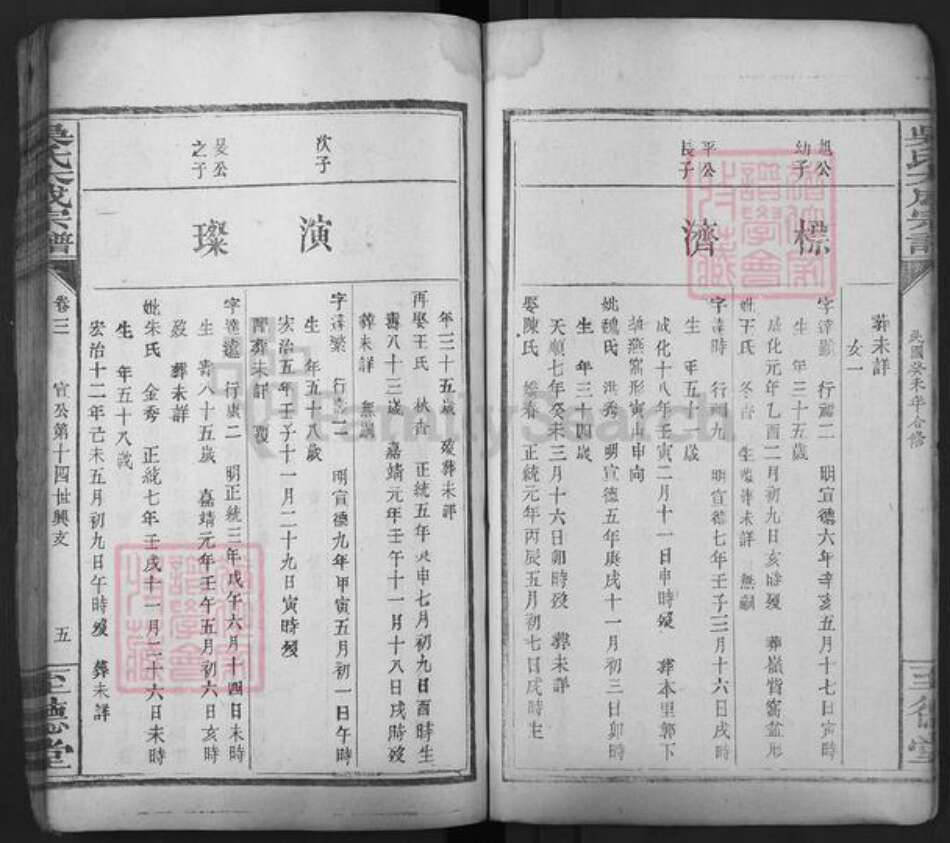 吳氏大成宗譜
民國癸未年合修
至德堂
葬未詳
女一
旭公幼子
標
字達顯 行福二 明宣德六年辛亥五月十七日寅時
生 年三十五歲
成化元年乙酉二月初九日亥時歿 葬嶺背窩盆形
姓王氏 冬香 生歿葬未詳 無嗣
平公長子
濟
字達時 行福九 明宣德七年壬子三月十六日戌時
生 年五十一歲
成化十八年壬寅二月十一日申時歿 葬本里郭下
雄燕窩形寅山申向
妣魏氏 洪秀 明宣德五年庚戌十一月初三日卯時
生 年三十四歲
天順七年癸未三月十六日卯時歿 葬未詳
娶陳氏 春 正統元年丙辰五月初七日戌時生
年三十五歲 歿葬未詳
再娶王氏 秋香 正統五年庚申七月初九日酉時生
壽八十三歲 嘉靖元年壬午十一月十八日戌時歿
葬未詳 無嗣
次子
演
字達繁 行 二 明宣德九年甲寅五月初一日午時
生 年五十八歲
宏治五年壬子十一月二十九日寅時歿
葬未詳
旻公之子
璨
字達遠 行康二 明正統三年戊午六月十四日未時
生 壽八十五歲 嘉靖元年壬午五月初六日亥時
歿 葬未詳
妣朱氏 金秀 正統七年壬戌十一月二十六日未時
生 年五十八歲
宏治十二年己未五月初九日午時歿 葬未詳
吳氏大成宗譜
卷三 宣公第十四世興支 五
至德堂